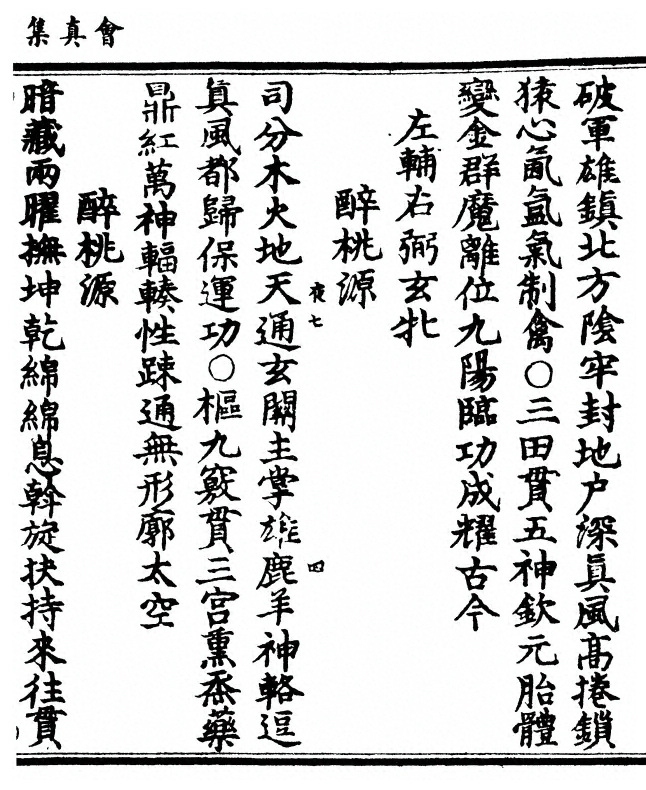 會真集
破軍雄鎮北方陰牢封地户深真風高捲鎖
猿心氤氳氣制禽○三田貫五神欽元胎體
變金群魔離位九陽臨功成耀古今
左輔右弼玄牝
醉桃源
夜七
四
司分木火地天通玄關主掌雄鹿羊神輅逗
真風都歸保運功○樞九竅貫三宮熏烝藥
鼎紅萬神輻輳性踈通無形廓太空
醉桃源
暗藏兩曜撫坤乾綿綿息斡旋扶持來往貫